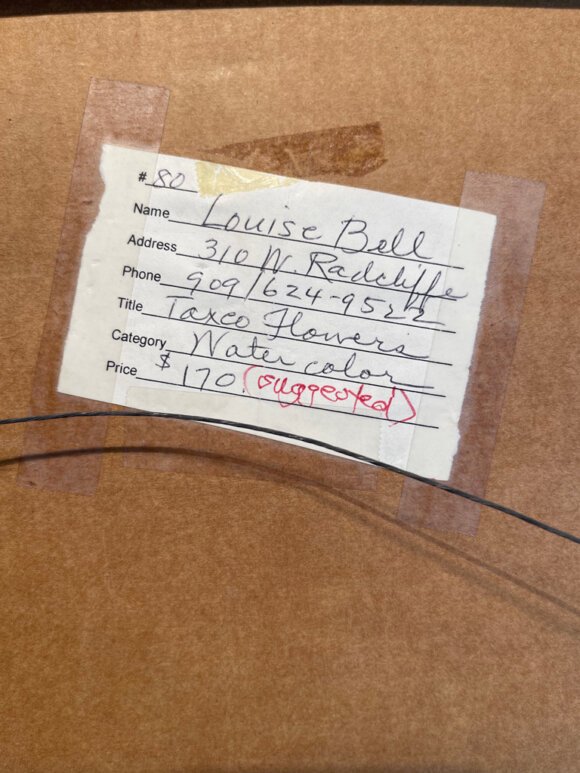 # 80
Name Louise Bell
Address 310 W. Radcliffe
Phone 909/624-9522
Title Taxco Flowers
Category Water color
Price $170. (suggested)